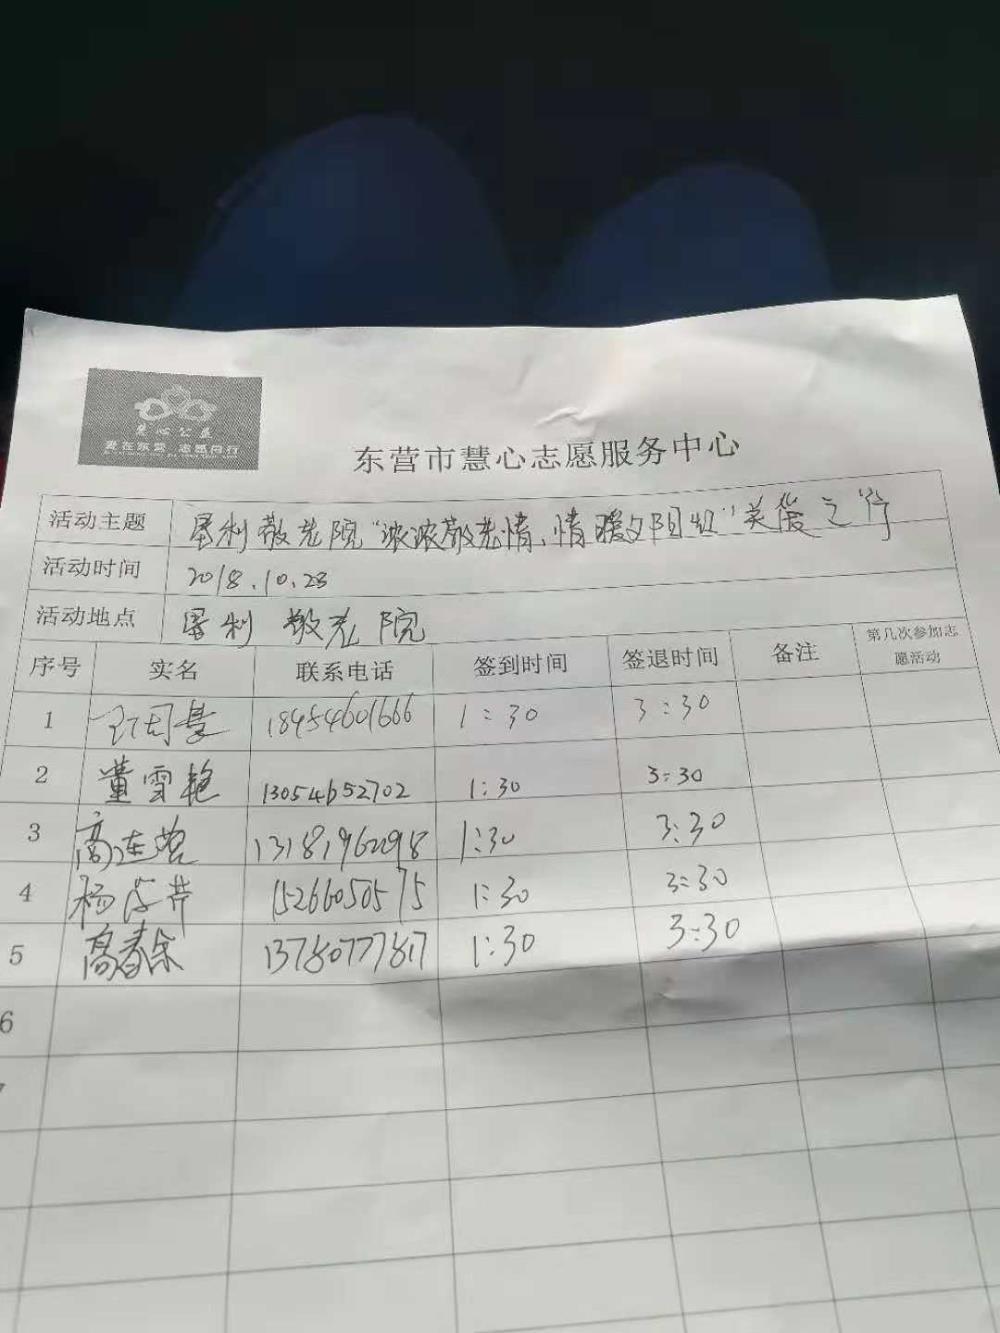 慧心公益
爱在东营 志愿同行
东营市慧心志愿服务中心
活动主题 垦利敬老院“浓浓敬老情、情暖夕阳红”关爱之行
活动时间 2018.10.23
活动地点 垦利 敬老院
序号 实名 联系电话 签到时间 签退时间 备注 第几次参加志愿活动
1 18454601666 1:30 3:30
2 董雪艳 13054652702 1:30 3:30
3 高连营 13181962098 1:30 3:30
4 杨 芹 15266050575 1:30 3:30
5 高春乐 13780777817 1:30 3:30
6
7